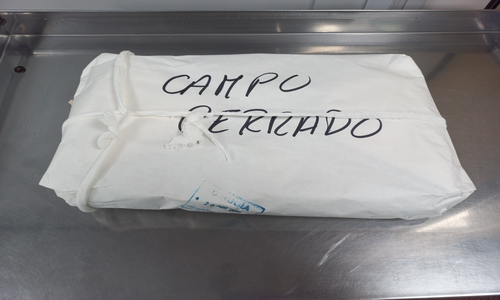 CAMPO
CERRADO